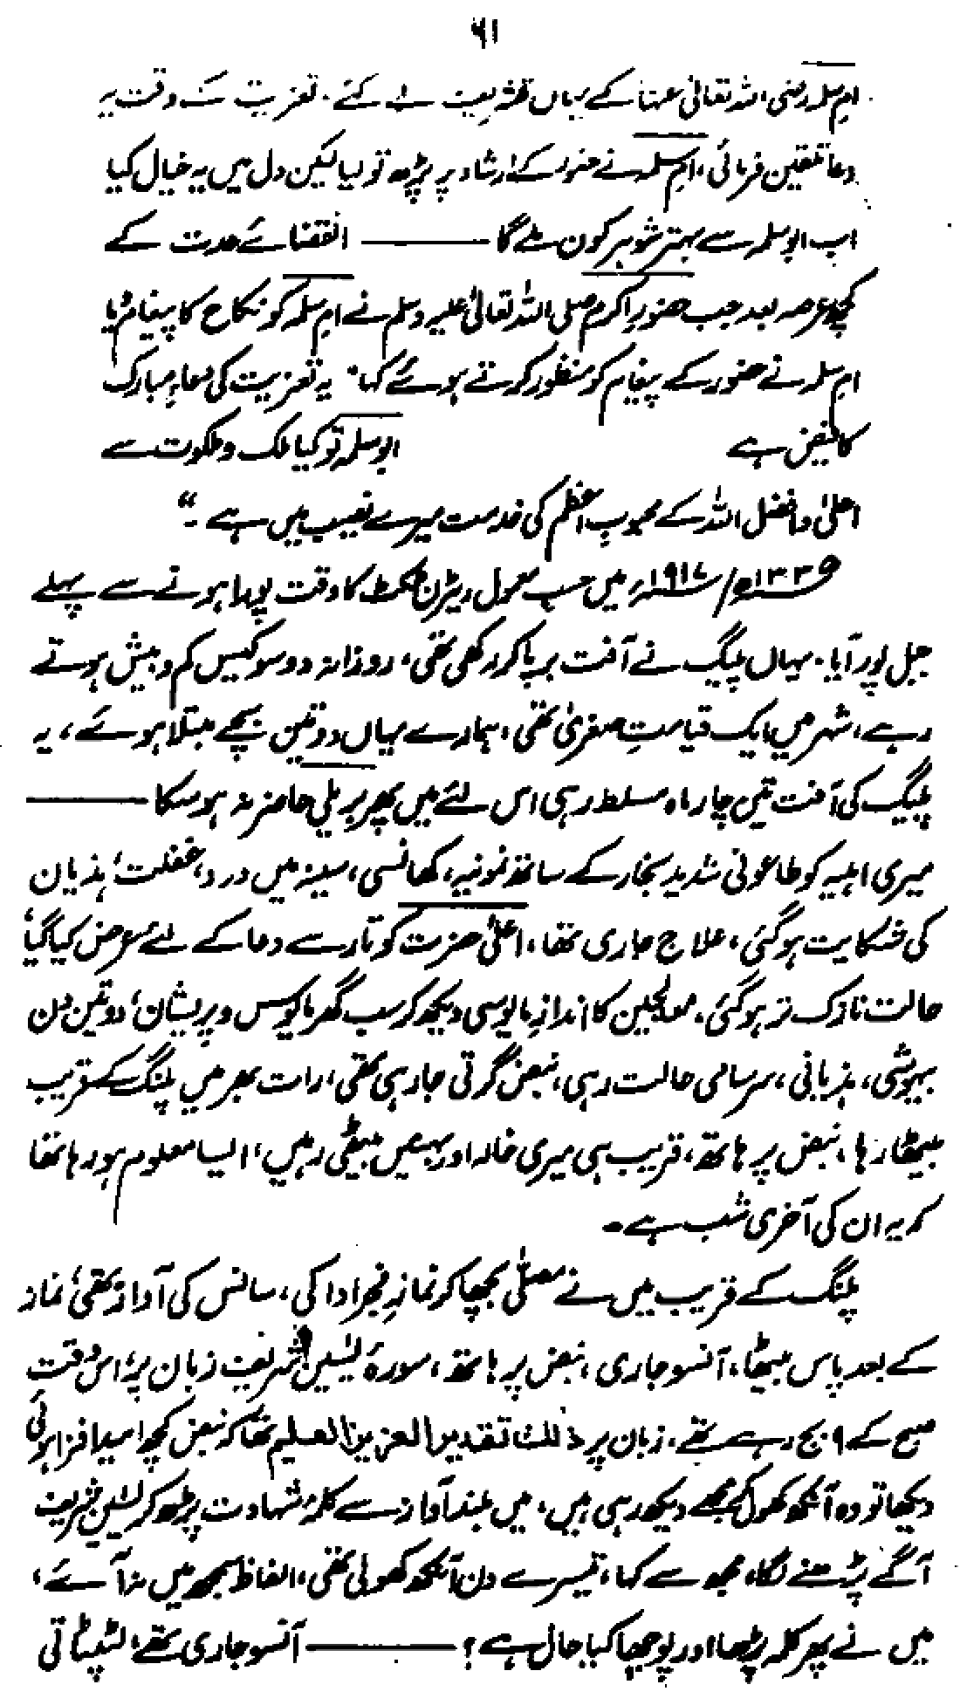 ۶۱
ام سلمہ رضی اللہ تعالیٰ عنہا کے یہاں تشریف لے گئے۔ تعزیت کے وقت یہ
دعا تلقین فرمائی، ام سلمہ نے حضور کے ارشاد پر پڑھ تو لیا لیکن دل میں یہ خیال کیا
اب ابو سلمہ سے بہتر شوہر کون ملے گا ——— انقضائے عدت کے
کچھ عرصہ بعد جب حضور اکرم صلی اللہ تعالیٰ علیہ وسلم نے ام سلمہ کو نکاح کا پیغام دیا
ام سلمہ نے حضور کے پیغام کو منظور کرتے ہوئے کہا " یہ تعزیت کی دعاءِ مبارک
کا فیض ہے ابو سلمہ تو کیا ملک و ملکوت سے
اعلیٰ و افضل اللہ کے محبوبِ اعظم کی خدمت میرے نصیب میں ہے ۔"
۱۳۳۵ھ/۱۹۱۷ء میں حسب معمول ریٹرن ٹکٹ کا وقت پورا ہونے سے پہلے
جبل پور آیا۔ یہاں پلیگ نے آفت برپا کر رکھی تھی، روزانہ دو سو کیس کم و بیش ہوتے
رہے، شہر میں ایک قیامتِ صغریٰ تھی، ہمارے یہاں دو تین بچے مبتلا ہوئے، یہ
پلیگ کی آفت تین چار ماہ مسلط رہی اس لئے میں پھر بریلی حاضر نہ ہو سکا ———
میری اہلیہ کو طاعونی شدید بخار کے ساتھ نمونیہ، کھانسی، سینہ میں درد، غفلت، ہذیان
کی شکایت ہو گئی، علاج جاری تھا، اعلیٰ حضرت کو تار سے دعا کے لئے عرض کیا گیا،
حالت نازک تر ہو گئی، معالجین کا انداز مایوسی دیکھ کر سب گھر مایوس و پریشان، دو تین دن
بیہوشی، ہذیانی، سرسامی حالت رہی، نبض گرتی جا رہی تھی، رات بھر میں پلنگ کے قریب
بیٹھا رہا، نبض پر ہاتھ، قریب ہی میری خالہ اور بہنیں بیٹھی رہیں، ایسا معلوم ہو رہا تھا
کہ یہ ان کی آخری شب ہے۔
پلنگ کے قریب میں نے مصلّٰی بچھا کر نماز فجر ادا کی، سانس کی آواز تھی، نماز
کے بعد پاس بیٹھا، آنسو جاری، نبض پر ہاتھ، سورۂ یٰسین شریف زبان پر، اس وقت
صبح کے ۹ بج رہے تھے، زبان پر ذٰلك تقدير العزيز العليم تھا کہ نبض کچھ امید افزا ہوئی
دیکھا تو وہ آنکھ کھول مجھے دیکھ رہی ہیں، میں بلند آواز سے کلمۂ شہادت پڑھ کر یٰسین شریف
آگے پڑھنے لگا، مجھ سے کہا، تیسرے دن آنکھ کھولی تھی، الفاظ سمجھ میں نہ آئے،
میں نے پھر کلمہ پڑھا اور پوچھا کیا حال ہے؟ ——— آنسو جاری تھے، لٹپٹاتی